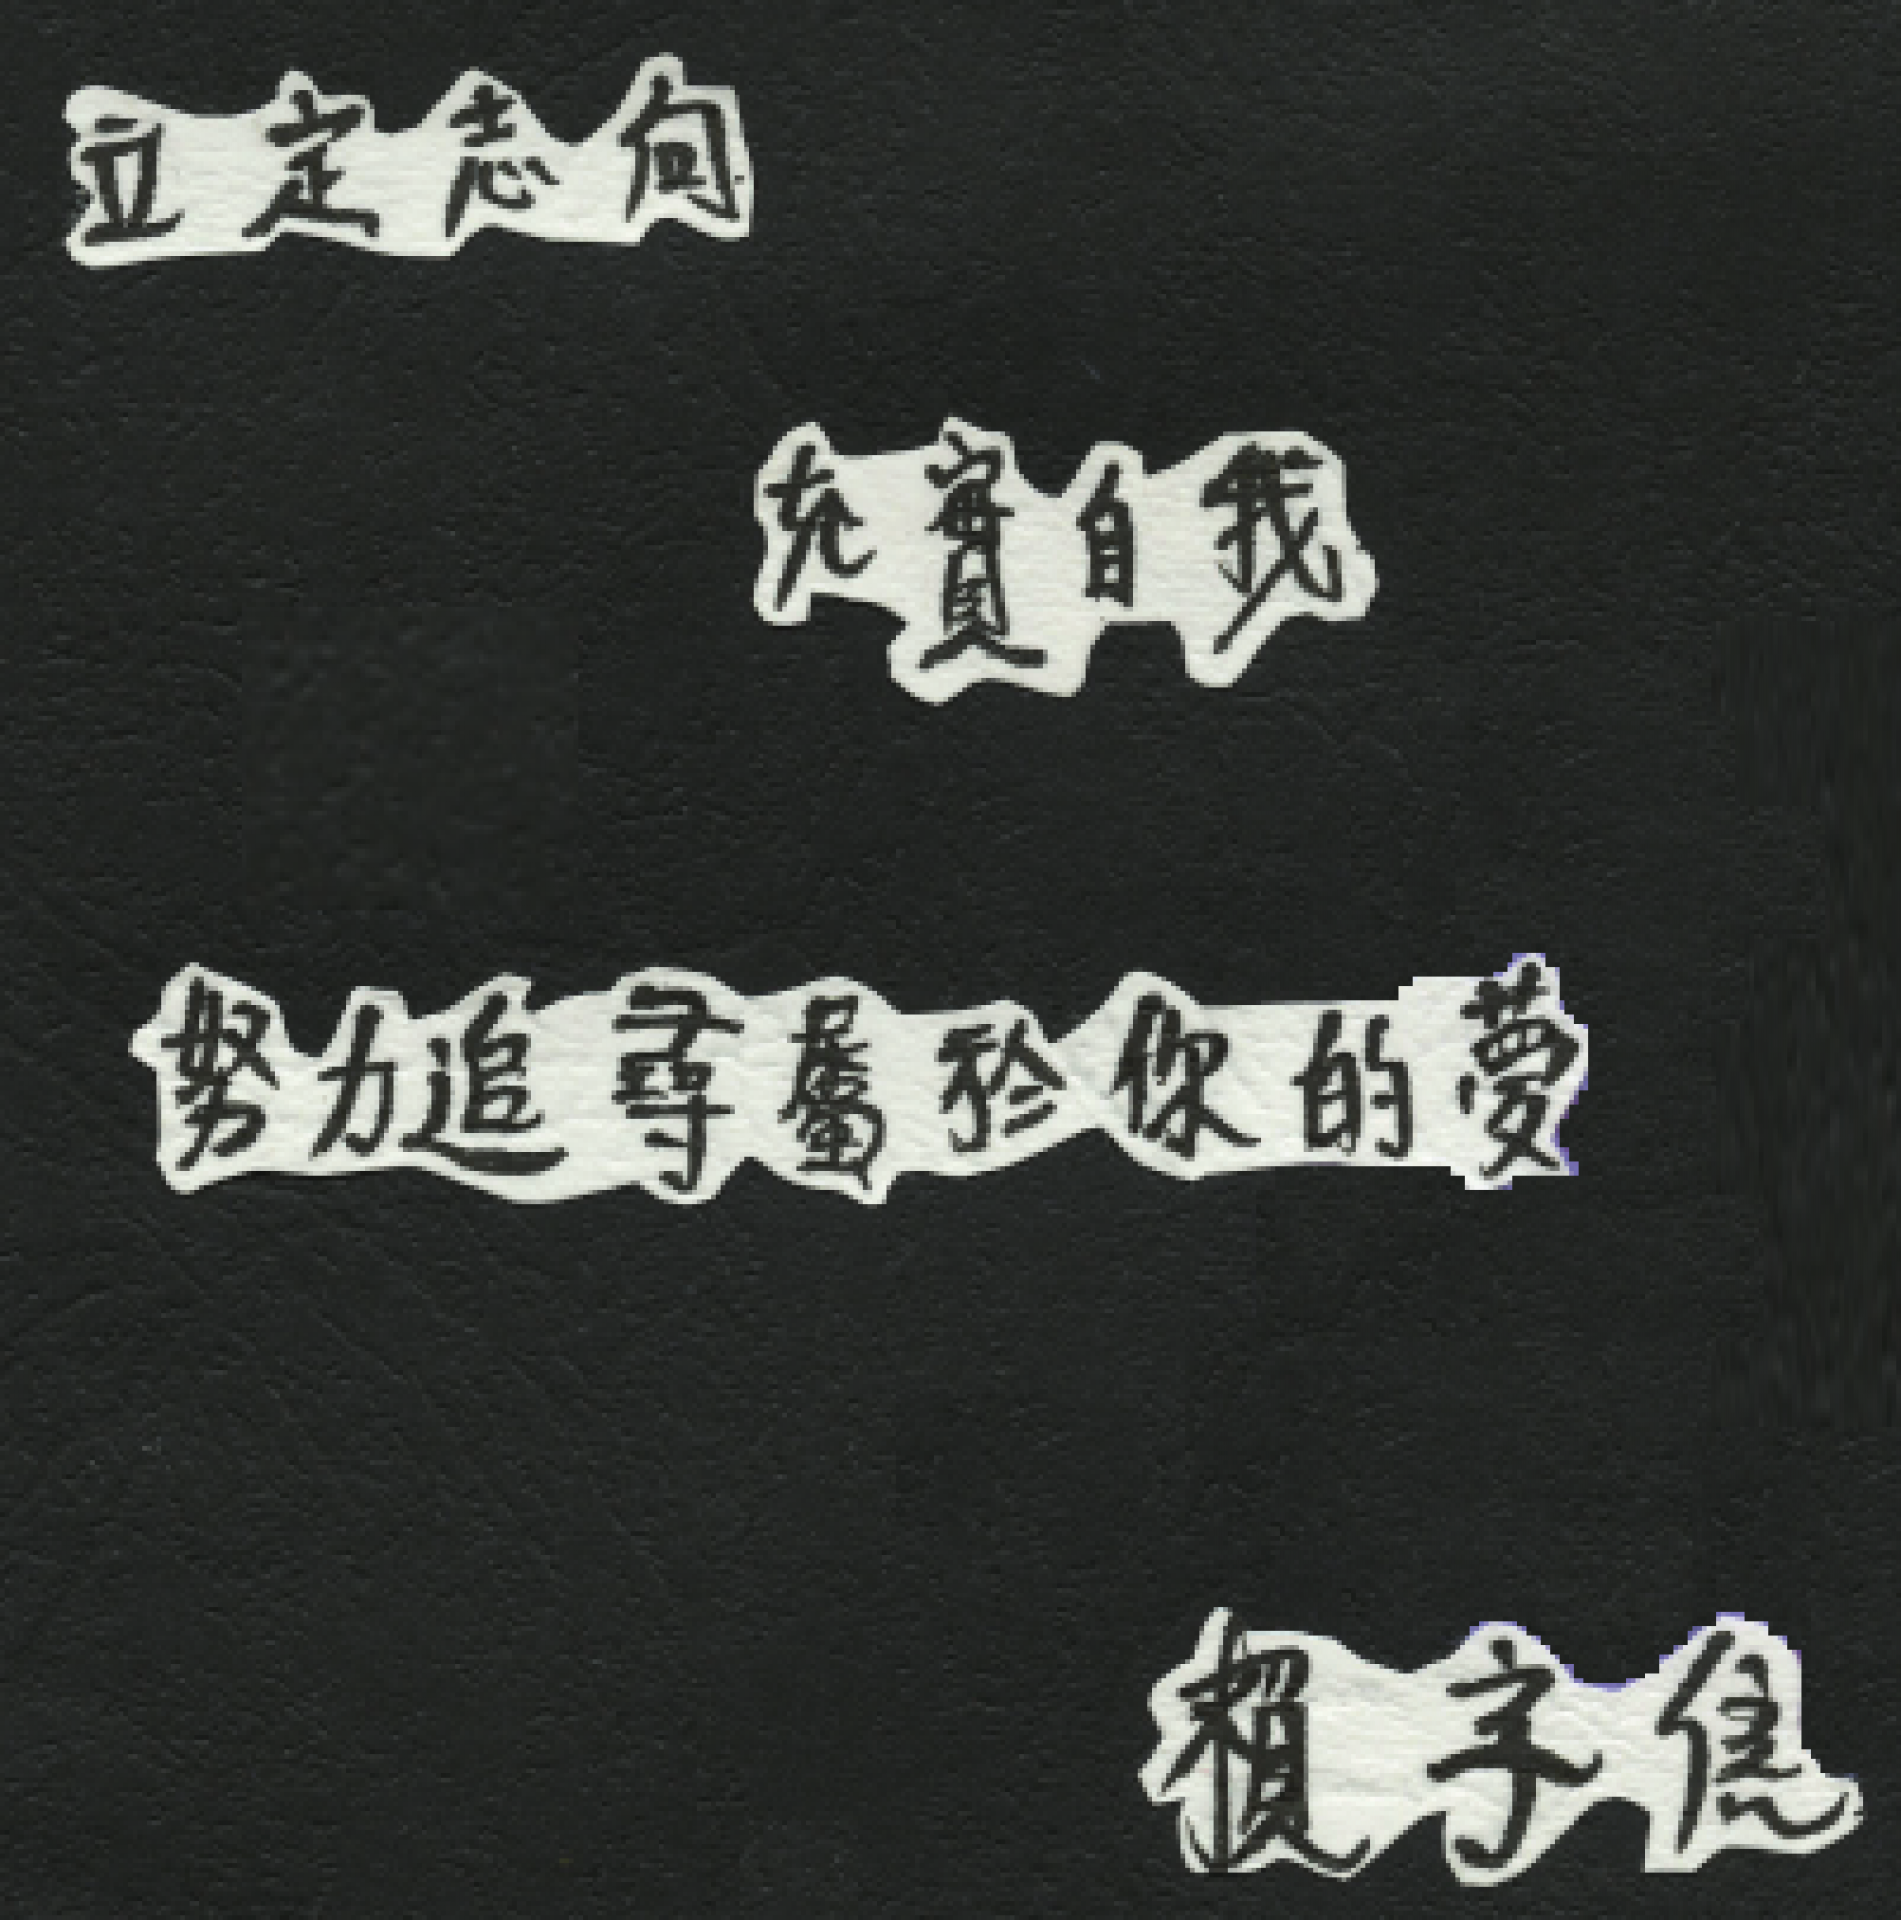 立定志向
充實自我
努力追尋屬於你的夢
賴字